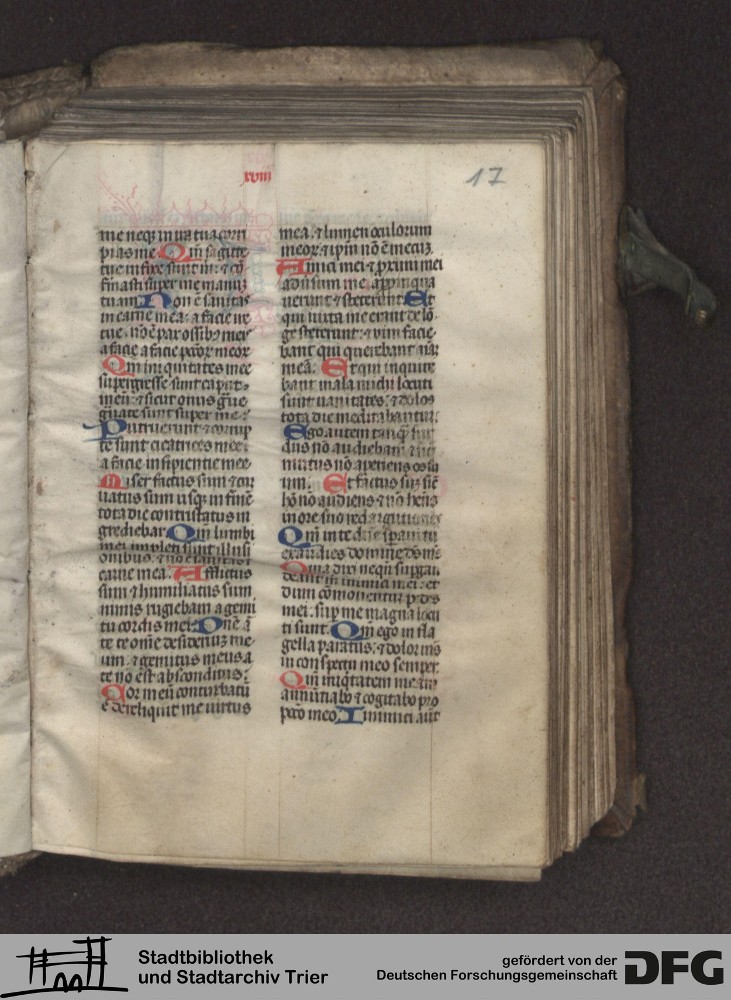 xviii
17
me neqꝫ in ira tua corri
pias me Qm̄ sagitte
tue infixe sunt m̄: ⁊ cō
firmasti super me manuꝫ
tuam Non ē sanitas
in carne mea: a facie ire
tue: nō ē pax ossibꝰ meis
a facie pctōꝝ meoꝝ
Qm̄ iniquitates mee
supergresse sunt caput
meū: ⁊ sicut onus g̃ue
g̃uate sunt super me:
Putruerunt ⁊ corrup
te sunt cicatrices mee:
a facie insipientie mee
Miser factus sum ⁊ cur
uatus sum usqꝫ in finē
tota die contristatus in
grediebar Qm̄ lumbi
mei impleti sunt illusi
onibus: ⁊ nō ē sanitas in
carne mea: Afflictus
sum ⁊ humiliatus sum
nimis rugiebam a gemi
tu cordis mei: Dn̄e ā
te te om̄e desideriuꝫ me
um: ⁊ gemitus meus a
te nō est absconditus:
Cor meū conturbatū
ē dereliquit me uirtus
mea: ⁊ lumen oculorum
meoꝝ: ⁊ ip̄m nō ē mecuꝫ
Amici mei ⁊ proximi mei
aduersum me appropinqua
uerunt ⁊ steterunt Et
qui iuxta me erant de lō
ge steterunt: ⁊ uim facie
bant qui querebant aīaꝫ
meā: Et qui inquire
bant mala michi locuti
sunt uanitates: ⁊ dolos
tota die meditabantur:
Ego autem tanq̄ sur
dus nō audiebam: ⁊ sic
mutus nō aperiens os su
um. Et factus suꝫ sic̄
hō nō audiens ⁊ nō hn̄s
in ore suo redargutiones
Qm̄ in te dn̄e speraui tu
exaudies domine dꝰ mꝰ
Quia dixi nequn̄ supgau
deant m̄ inimici mei: et
dum cōmouentur pedes
mei: sup me magna locu
ti sunt: Qm̄ ego in fla
gella paratus: ⁊ dolor mꝰ
in conspectu meo semper
Qm̄ iniq̄tatem meam
annūtiabo ⁊ cogitabo pro
pctō meo: Inimici aūt
Stadtbibliothek
und Stadtarchiv Trier
gefördert von der
Deutschen Forschungsgemeinschaft
DFG